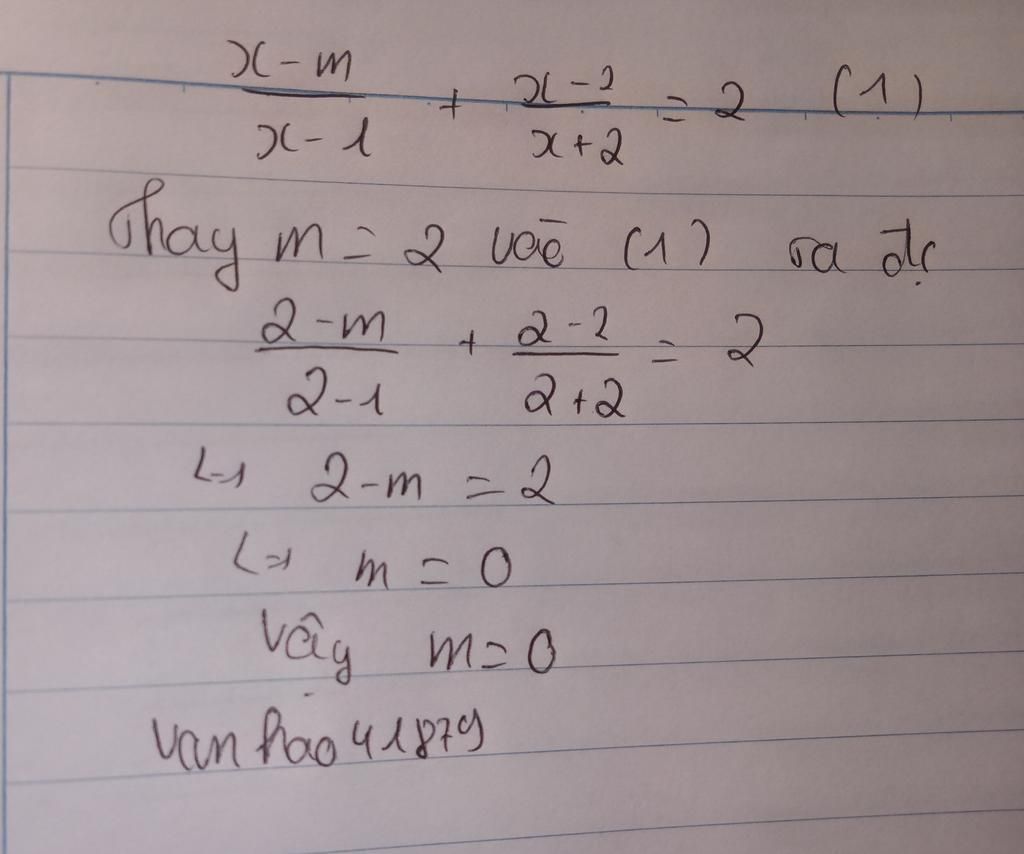 x - m / x - 1 + x - 2 / x + 2 = 2 (1)
Thay m = 2 vào (1) ta đc
2 - m / 2 - 1 + 2 - 2 / 2 + 2 = 2
<=> 2 - m = 2
<=> m = 0
Vậy m = 0
vanhao41879